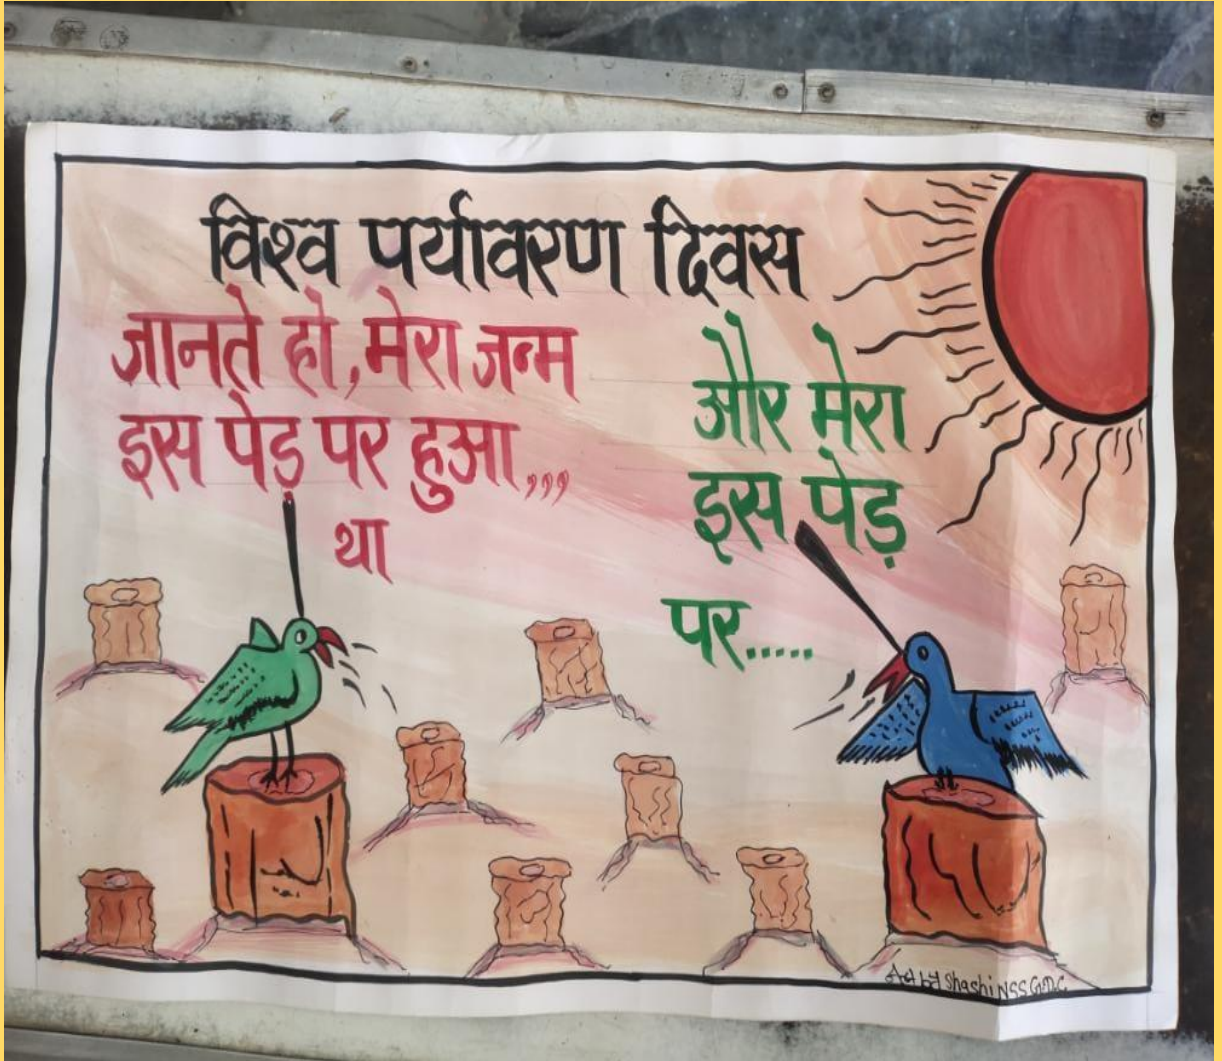 विश्व पर्यावरण दिवस
जानते हो,मेरा जन्म
इस पेड़ पर हुआ,,,
था
और मेरा
इस पेड़
पर.....
Art by Shashi NSS GDC